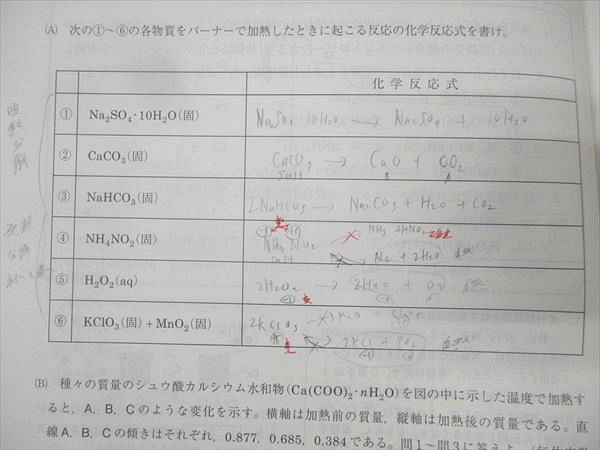 (A) 次の①～⑥の各物質をバーナーで加熱したときに起こる反応の化学反応式を書け。
化学反応式
① Na₂SO₄･10H₂O(固) Na₂SO₄ 10H₂O → Na₂SO₄ + 10H₂O
② CaCO₃(固) CaCO₃ → CaO + CO₂
salt B A
③ NaHCO₃(固) 2NaHCO₃ → Na₂CO₃ + H₂O + CO₂
④ NH₄NO₂(固) NH₄NO₂ NH₃ HNO₂
salt N₂ + 2H₂O
⑤ H₂O₂(aq) 2H₂O₂ → 2H₂O + O₂
⑥ KClO₃(固)＋MnO₂(固) 2KClO₃
2KCl + 3O₂
(B) 種々の質量のシュウ酸カルシウム水和物(Ca(COO)₂･nH₂O)を図の中に示した温度で加熱す
ると，A，B，Cのような変化を示す。横軸は加熱前の質量，縦軸は加熱後の質量である。直
線A，B，Cの傾きはそれぞれ，0.877，0.685，0.384である。問1～問3に答えよ。